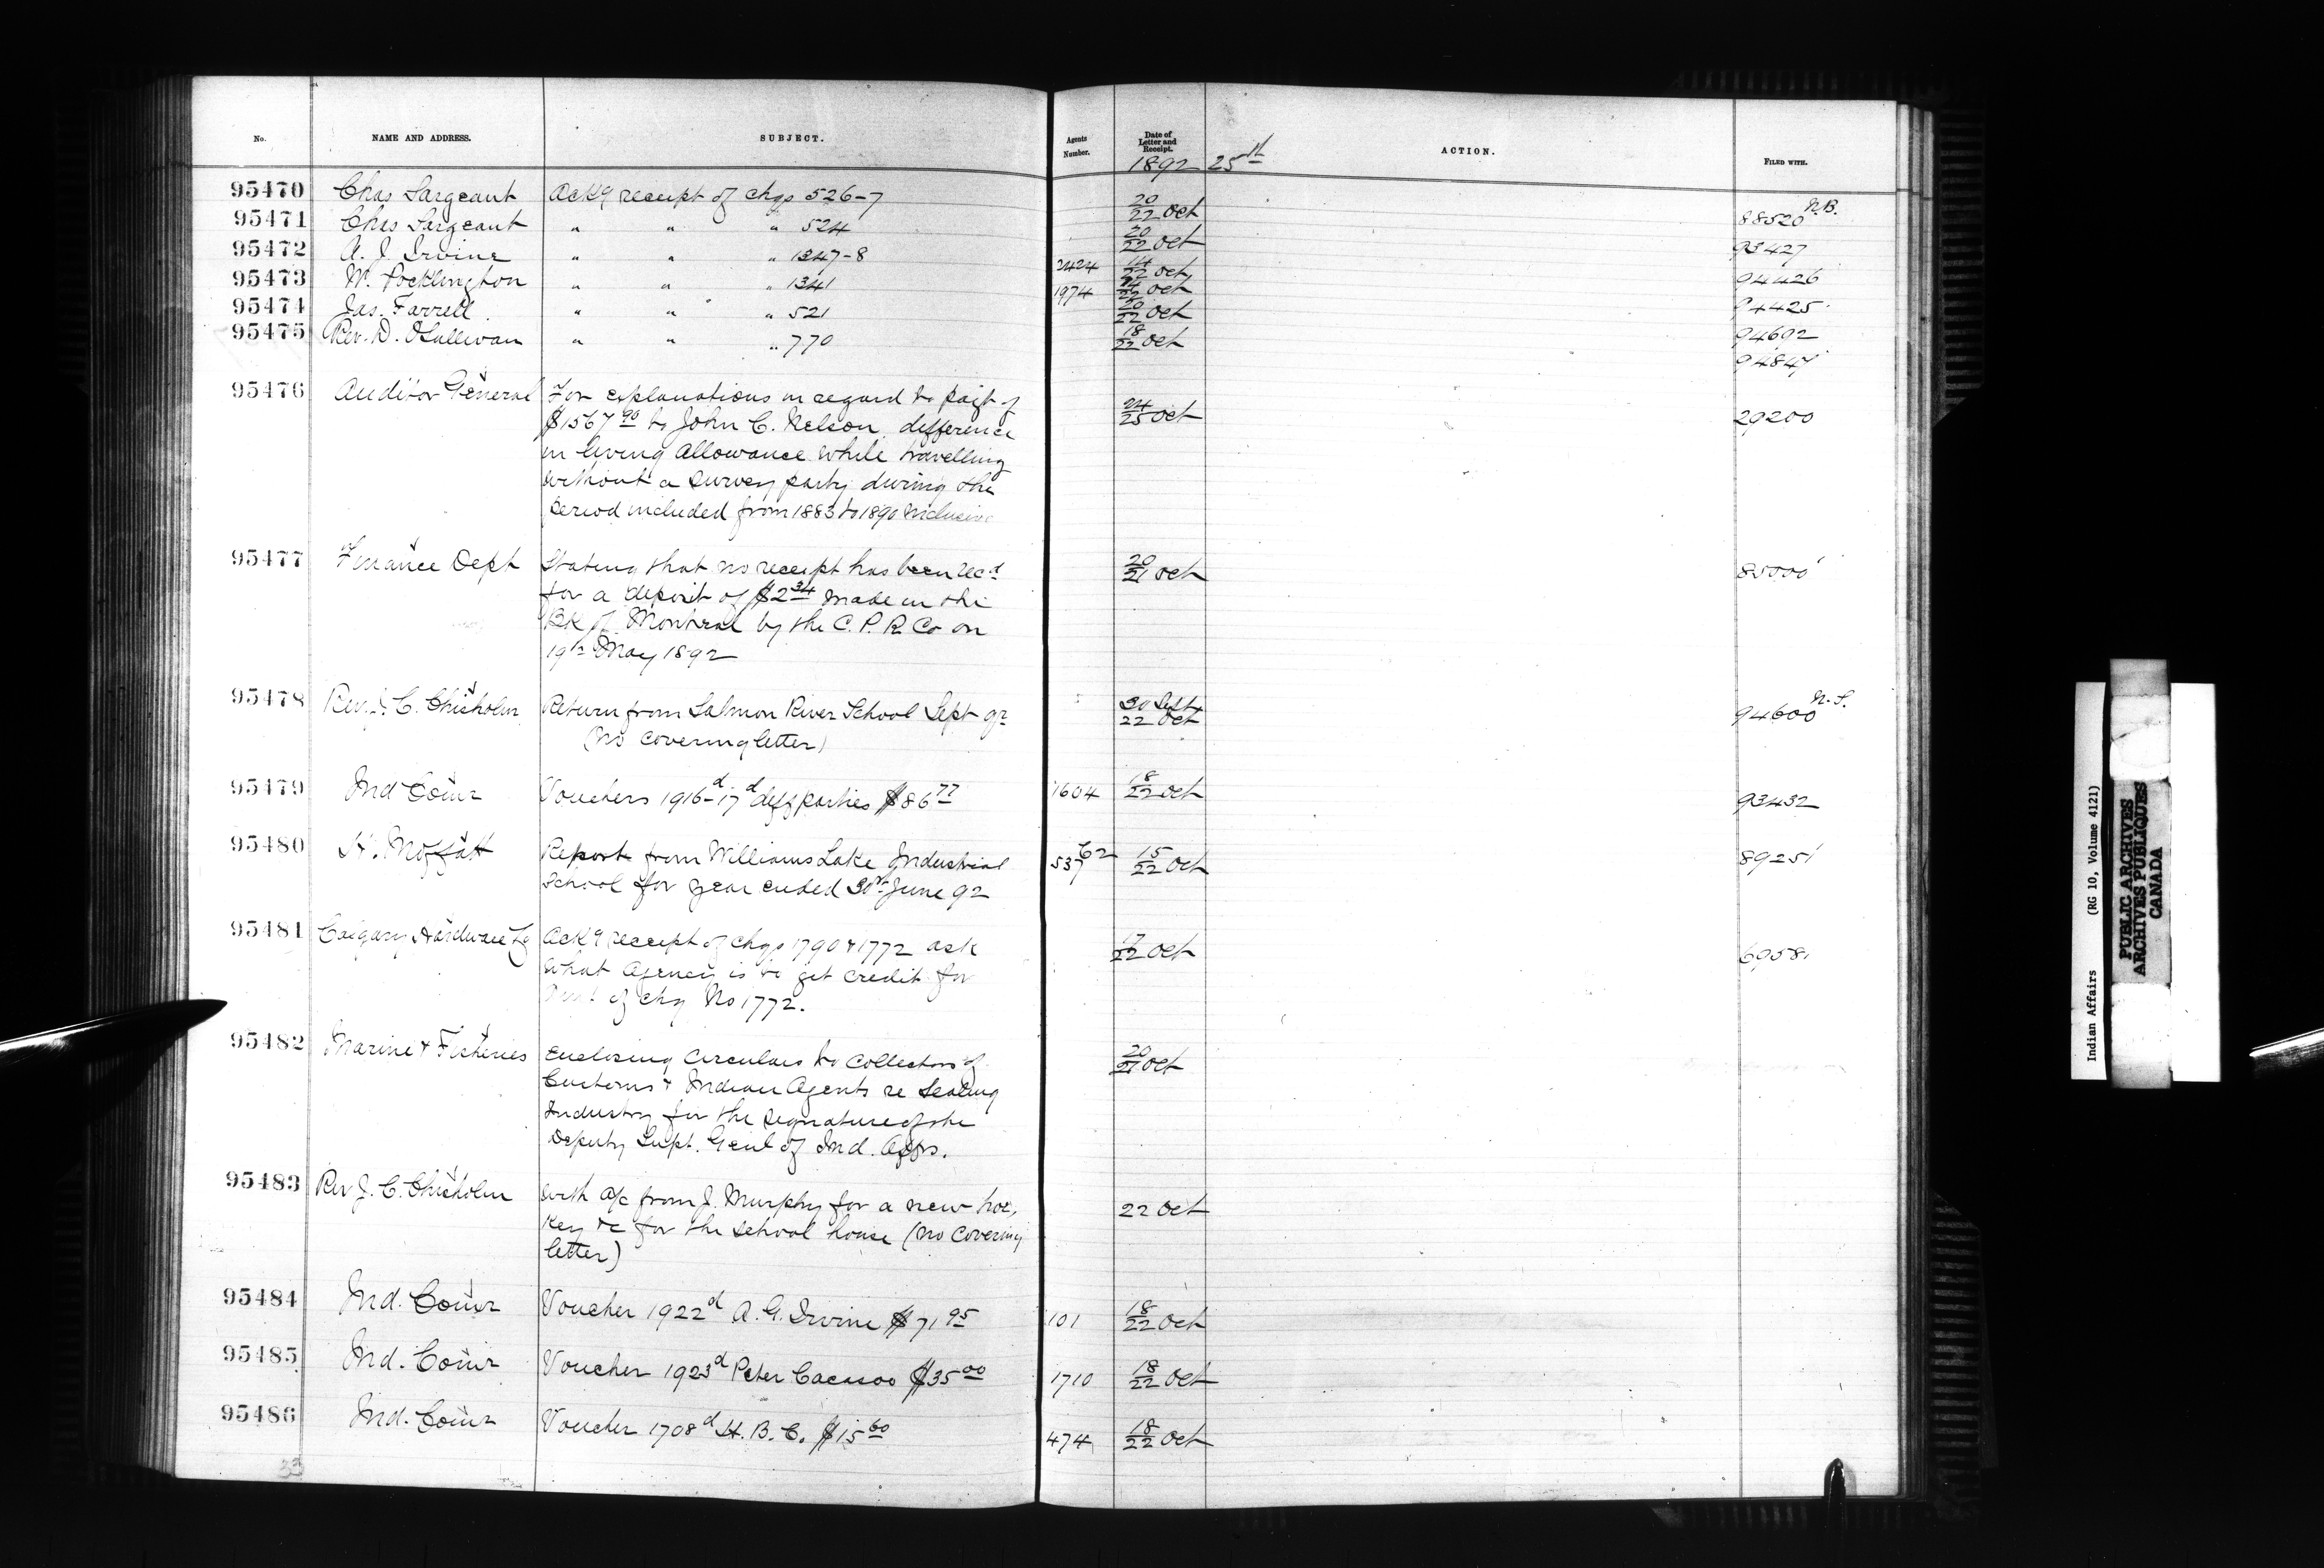 No. NAME AND ADDRESS. SUBJECT. Agents Number. Date of Letter and Receipt. ACTION. FILED WITH.
1892 25th
95470 Chas Sargeant Ackg receipt of chqs 526-7 20/22 Oct 88520 N.B.
95471 Chas Sargeant " " " 524 20/22 Oct 93427
95472 A. J. Irvine " " " 1347-8 2424 14/22 Oct 94426
95473 W. Pocklington " " " 1341 1974 Oct 94425
95474 Jas. Farrell " " " 521 20/22 Oct 94692
95475 Rev. D. O'Sullivan " " " 770 18/22 Oct 94847
95476 Auditor General For explanations in regard to paigt of 24/25 Oct 29200
$1567 90 to John C. Nelson, difference
in living Allowance while travelling
without a survey party during the
period included from 1883 to 1890 inclusive
95477 Finance Dept Stating that no receipt has been recd 20/21 Oct 85000
for a deposit of $2 34 made in the
Bk of Montreal by the C. P. R. Co on
19th May 1892
95478 Rev. J. C. Chisholm Return from Salmon River School Sept qr 30 Sept/22 Oct 94600 N.S.
(No covering letter)
95479 Ind Comr Vouchers 1916d-17d diff parties $86 77 1604 18/22 Oct 93432
95480 H. Moffatt Report from Williams Lake Industrial 537 62 15/22 Oct 89251
School for year ended 30th June 92
95481 Calgary Hardware Co Ackg receipt of chqs 1790 & 1772 ask 17/22 Oct 69581
what Agency is to get credit for
Amt of chq No 1772.
95482 Marine & Fisheries Enclosing circulars to Collectors of 20/21 Oct
Customs & Indian Agents re Sealing
Industry for the signature of the
Deputy Supt. Genl of Ind. Affrs.
95483 Rev J. C. Chisholm with a/c from J. Murphy for a new hoe, 22 Oct
Key &c for the school house (no covering
letter)
95484 Ind. Comr Voucher 1922d A. G. Irvine $71 95 101 18/22 Oct
95485 Ind. Comr Voucher 1923d Peter Cacasoo $35 00 1710 18/22 Oct
95486 Ind. Comr Voucher 1708d H. B. C. $15 60 474 18/22 Oct
33
Indian Affairs (RG 10, Volume 4121)
PUBLIC ARCHIVES
ARCHIVES PUBLIQUES
CANADA